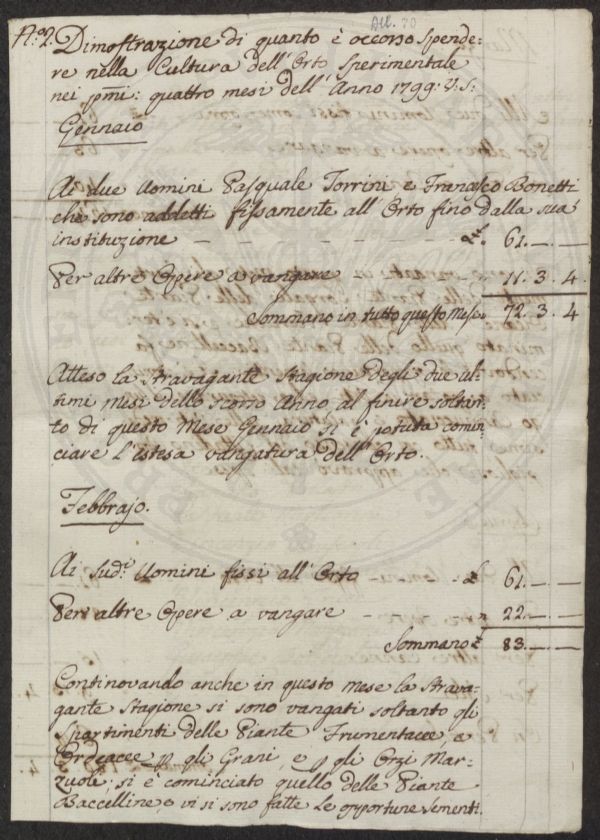 All. 20
N.º 2.
Dimostrazione di quanto è occorso spende=
re nella Cultura dell'Orto Sperimentale
nei pmi: quattro mesi dell'Anno 1799: V: S:
Gennaio
Ai due Uomini Pasquale Torrini e Francesco Bonetti
che sono addetti fissamente all'Orto fino dalla sua
instituzione - - - - £. 61. — —
Per altre Opere a vangare 11. 3. 4
Sommano in tutto questo Mese 72. 3. 4
Atteso la stravagante Stagione degli due ul=
timi Mesi dello scorso Anno al finire soltan=
to di questo Mese Gennaio si è potuta comin=
ciare l'istesa vangatura dell'Orto.
Febbrajo.
Ai sud.i Uomini fissi all'Orto - £ 61. — —
Per altre Opere a vangare - - - " 22. — —
Sommano £ 83. — —
Continovando anche in questo mese la strava=
gante Stagione si sono vangati soltanto gli
Spartimenti delle Piante Frumentacee a
Ordeacee p gli Grani, e p gli Orzi Mar=
zuoli; si è cominciato quello delle Piante
Baccelline, e vi si sono fatte le opportune sementi.